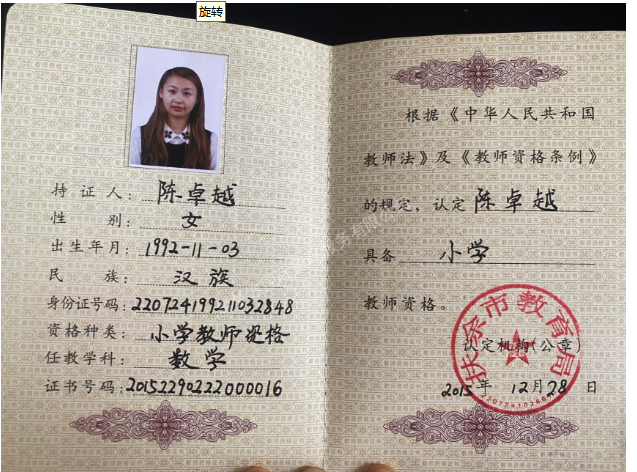 旋转
持 证 人：陈卓越
性 别：女
出生年月：1992-11-03
民 族：汉族
身份证号码：220724199211032848
资格种类：小学教师资格
任教学科：数学
证书号码：20152290222000016
根据《中华人民共和国
教师法》及《教师资格条例》
的规定，认定 陈卓越
具备 小学
教师资格。
扶余市教育局
认定机构(公章)
2015年 12月28日